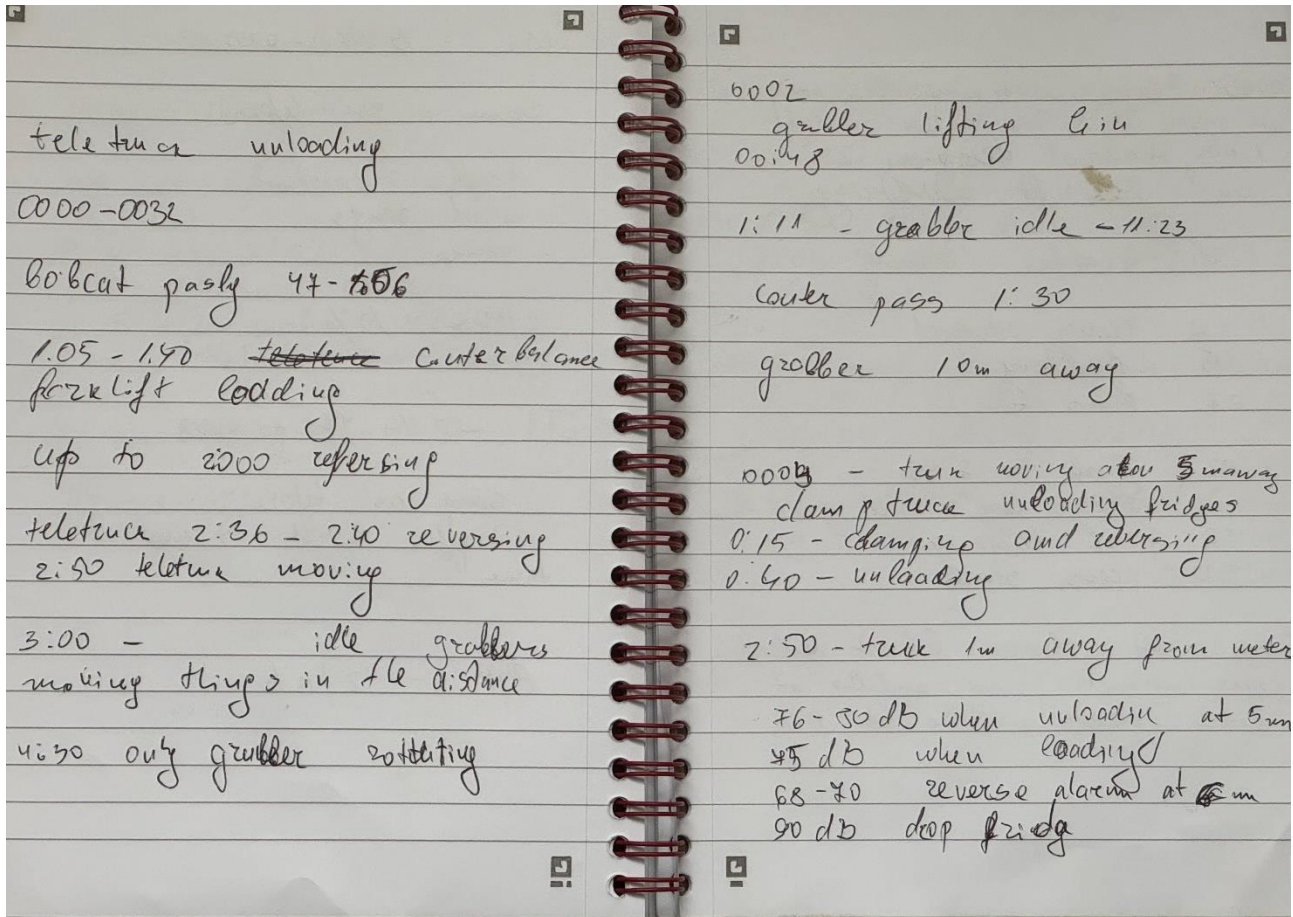 teletruck unloading
0000-0032
bobcat pasig 47-56
1.05-1.40 teletruck Counterbalance
forklift loading
up to 2000 refersing
teletruck 2:36-2:40 reversing
2:50 teletruck moving
3:00 - idle grabbers
moving things in the distance
4:30 only grabber
0002
grabber lifting
00:48
1:11 - grabber idle -11:23
Couter pass 1:30
grabber 10m away
- truk moving 5m away
clamp truck unloading fridges
0:15 - clamping and reversing
0:40 - unloading
2:50 - truck 1m away from meter
76-80 dB when unloadin at 5m
75 dB when loading
68-70 reverse alarm at m
90 dB drop fridg